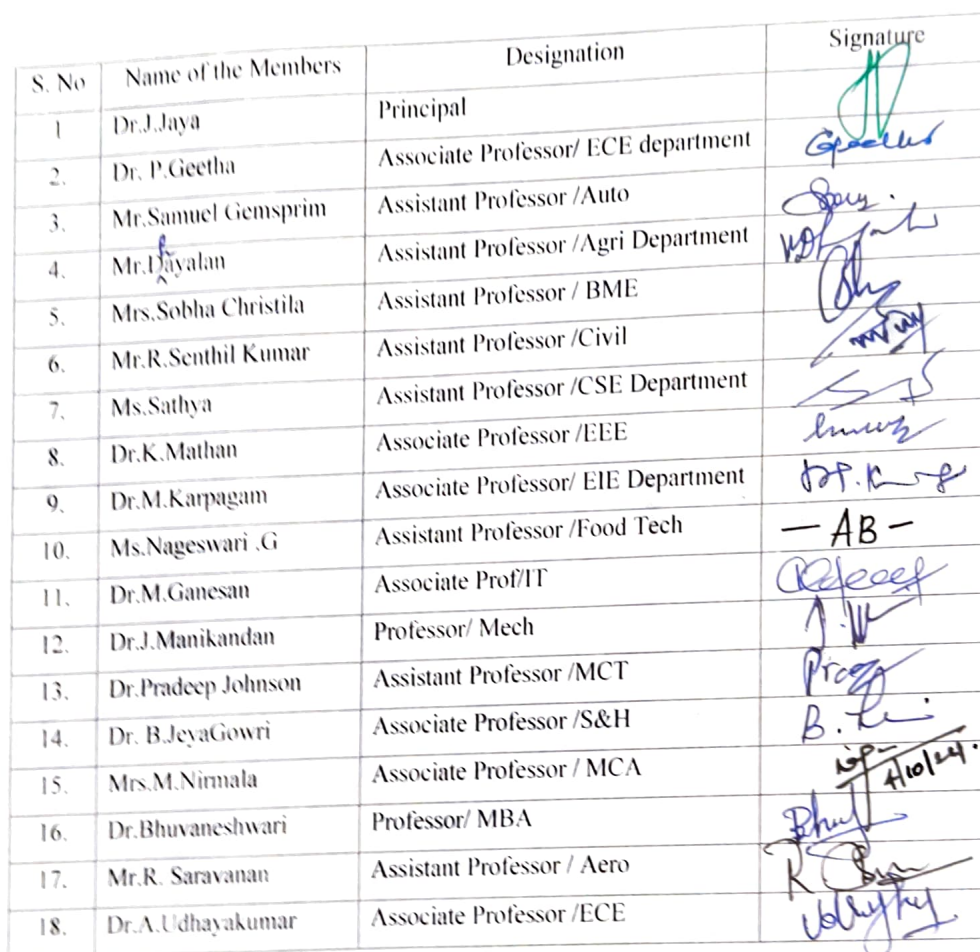 S. No Name of the Members Designation Signature
1 Dr.J.Jaya Principal
2. Dr. P.Geetha Associate Professor/ ECE department
3. Mr.Samuel Gemsprim Assistant Professor /Auto
4. Mr.Dhayalan Assistant Professor /Agri Department
5. Mrs.Sobha Christila Assistant Professor / BME
6. Mr.R.Senthil Kumar Assistant Professor /Civil
7. Ms.Sathya Assistant Professor /CSE Department
8. Dr.K.Mathan Associate Professor /EEE
9. Dr.M.Karpagam Associate Professor/ EIE Department
10. Ms.Nageswari .G Assistant Professor /Food Tech — AB —
11. Dr.M.Ganesan Associate Prof/IT
12. Dr.J.Manikandan Professor/ Mech
13. Dr.Pradeep Johnson Assistant Professor /MCT
14. Dr. B.JeyaGowri Associate Professor /S&H
15. Mrs.M.Nirmala Associate Professor / MCA 4/10/24.
16. Dr.Bhuvaneshwari Professor/ MBA
17. Mr.R. Saravanan Assistant Professor / Aero
18. Dr.A.Udhayakumar Associate Professor /ECE